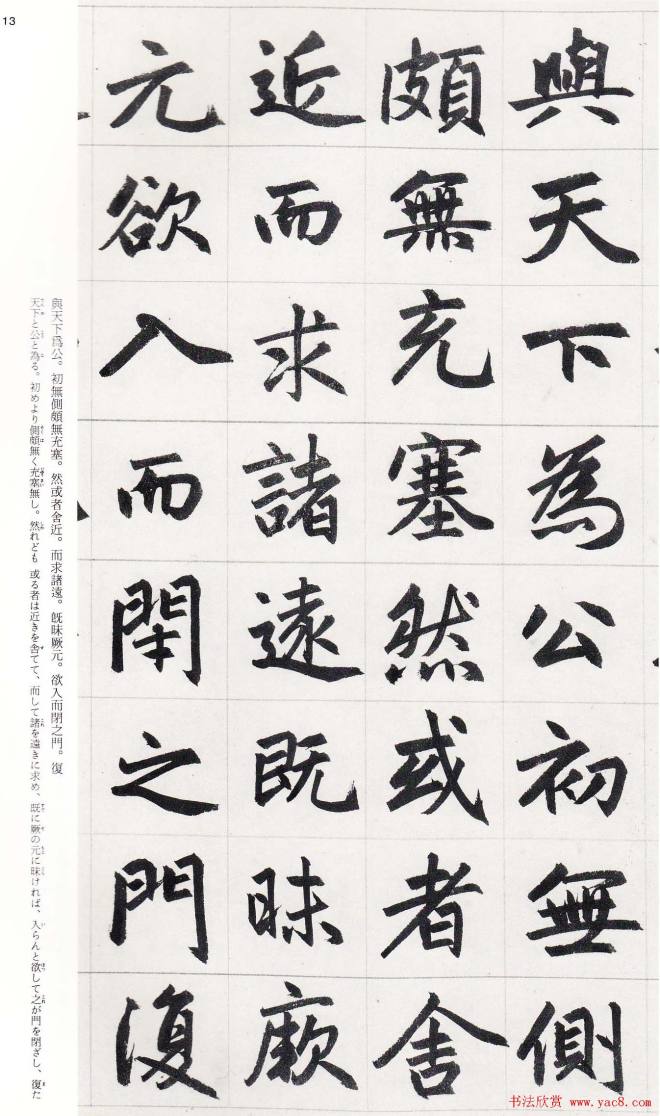 與天下為公初無側
頗無充塞然或者舍
近而求諸遠既昧厥
元欲入而閉之門復
與天下爲公。初無側頗無充塞。然或者舍近。而求諸遠。既昧厥元。欲入而閉之門。復
天下と公と為る。初めより側頗無く充塞無し。然れども 或る者は近きを舎てて、而して諸を遠きに求め、既に厥の元に昧ければ、入らんと欲して之が門を閉ざし、復た
13
书法欣赏 www.yac8.com